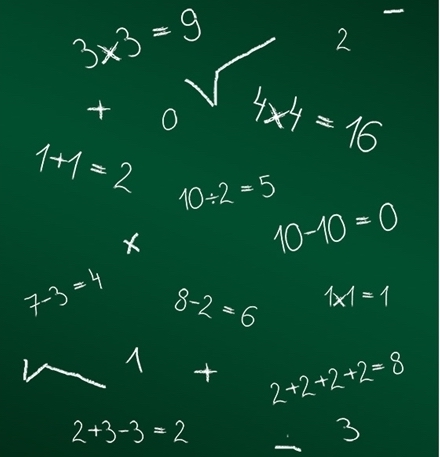 3×3=9
√
2
−
+
0
4×4=16
1+1=2
10÷2=5
10-10=0
×
7-3=4
8-2=6
1×1=1
√
1
+
2+2+2+2=8
2+3-3=2
−
3